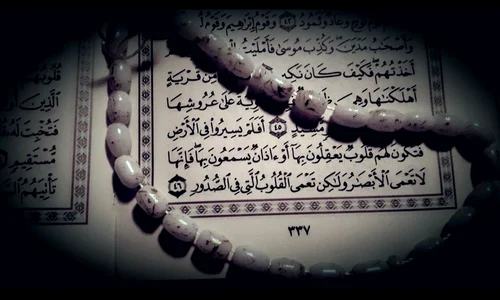 نُوحٍ وَعَادٌ وَثَمُودُ ٤٢ وَقَوْمُ إِبْرَٰهِيمَ وَقَوْمُ
وَأَصْحَٰبُ مَدْيَنَ وَكُذِّبَ مُوسَىٰ فَأَمْلَيْتُ
أَخَذْتُهُمْ فَكَيْفَ كَانَ نَكِيرِ مِّن قَرْيَةٍ
أَهْلَكْنَٰهَا وَهِىَ ظَالِمَةٌ فَهِىَ خَاوِيَةٌ عَلَىٰ عُرُوشِهَا
مَّشِيدٍ ٤٥ أَفَلَمْ يَسِيرُوا۟ فِى ٱلْأَرْضِ
فَتَكُونَ لَهُمْ قُلُوبٌ يَعْقِلُونَ بِهَآ أَوْ ءَاذَانٌ يَسْمَعُونَ بِهَا فَإِنَّهَا
لَا تَعْمَى ٱلْأَبْصَٰرُ وَلَٰكِن تَعْمَى ٱلْقُلُوبُ ٱلَّتِى فِى ٱلصُّدُورِ ٤٦
٣٣٧
قُلُوبُهُم
ٱلَّذِينَ أُو
فَتُخْبِتَ لَهُۥ
مُّسْتَقِيمٍ
تَأْتِيَهُمُ